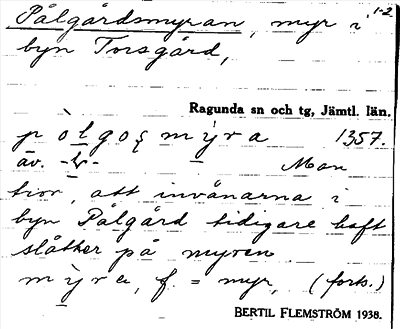 Pålgårdsmyran, myr i 1-2
byn Torsgård,
Ragunda sn och tg, Jämtl. län.
mỳra 1357.
äv. Man
tror, att invånarna i
byn Pålgård tidigare haft
slåtter på myren.
f. = myr, (forts.)
BERTIL FLEMSTRÖM 1938.